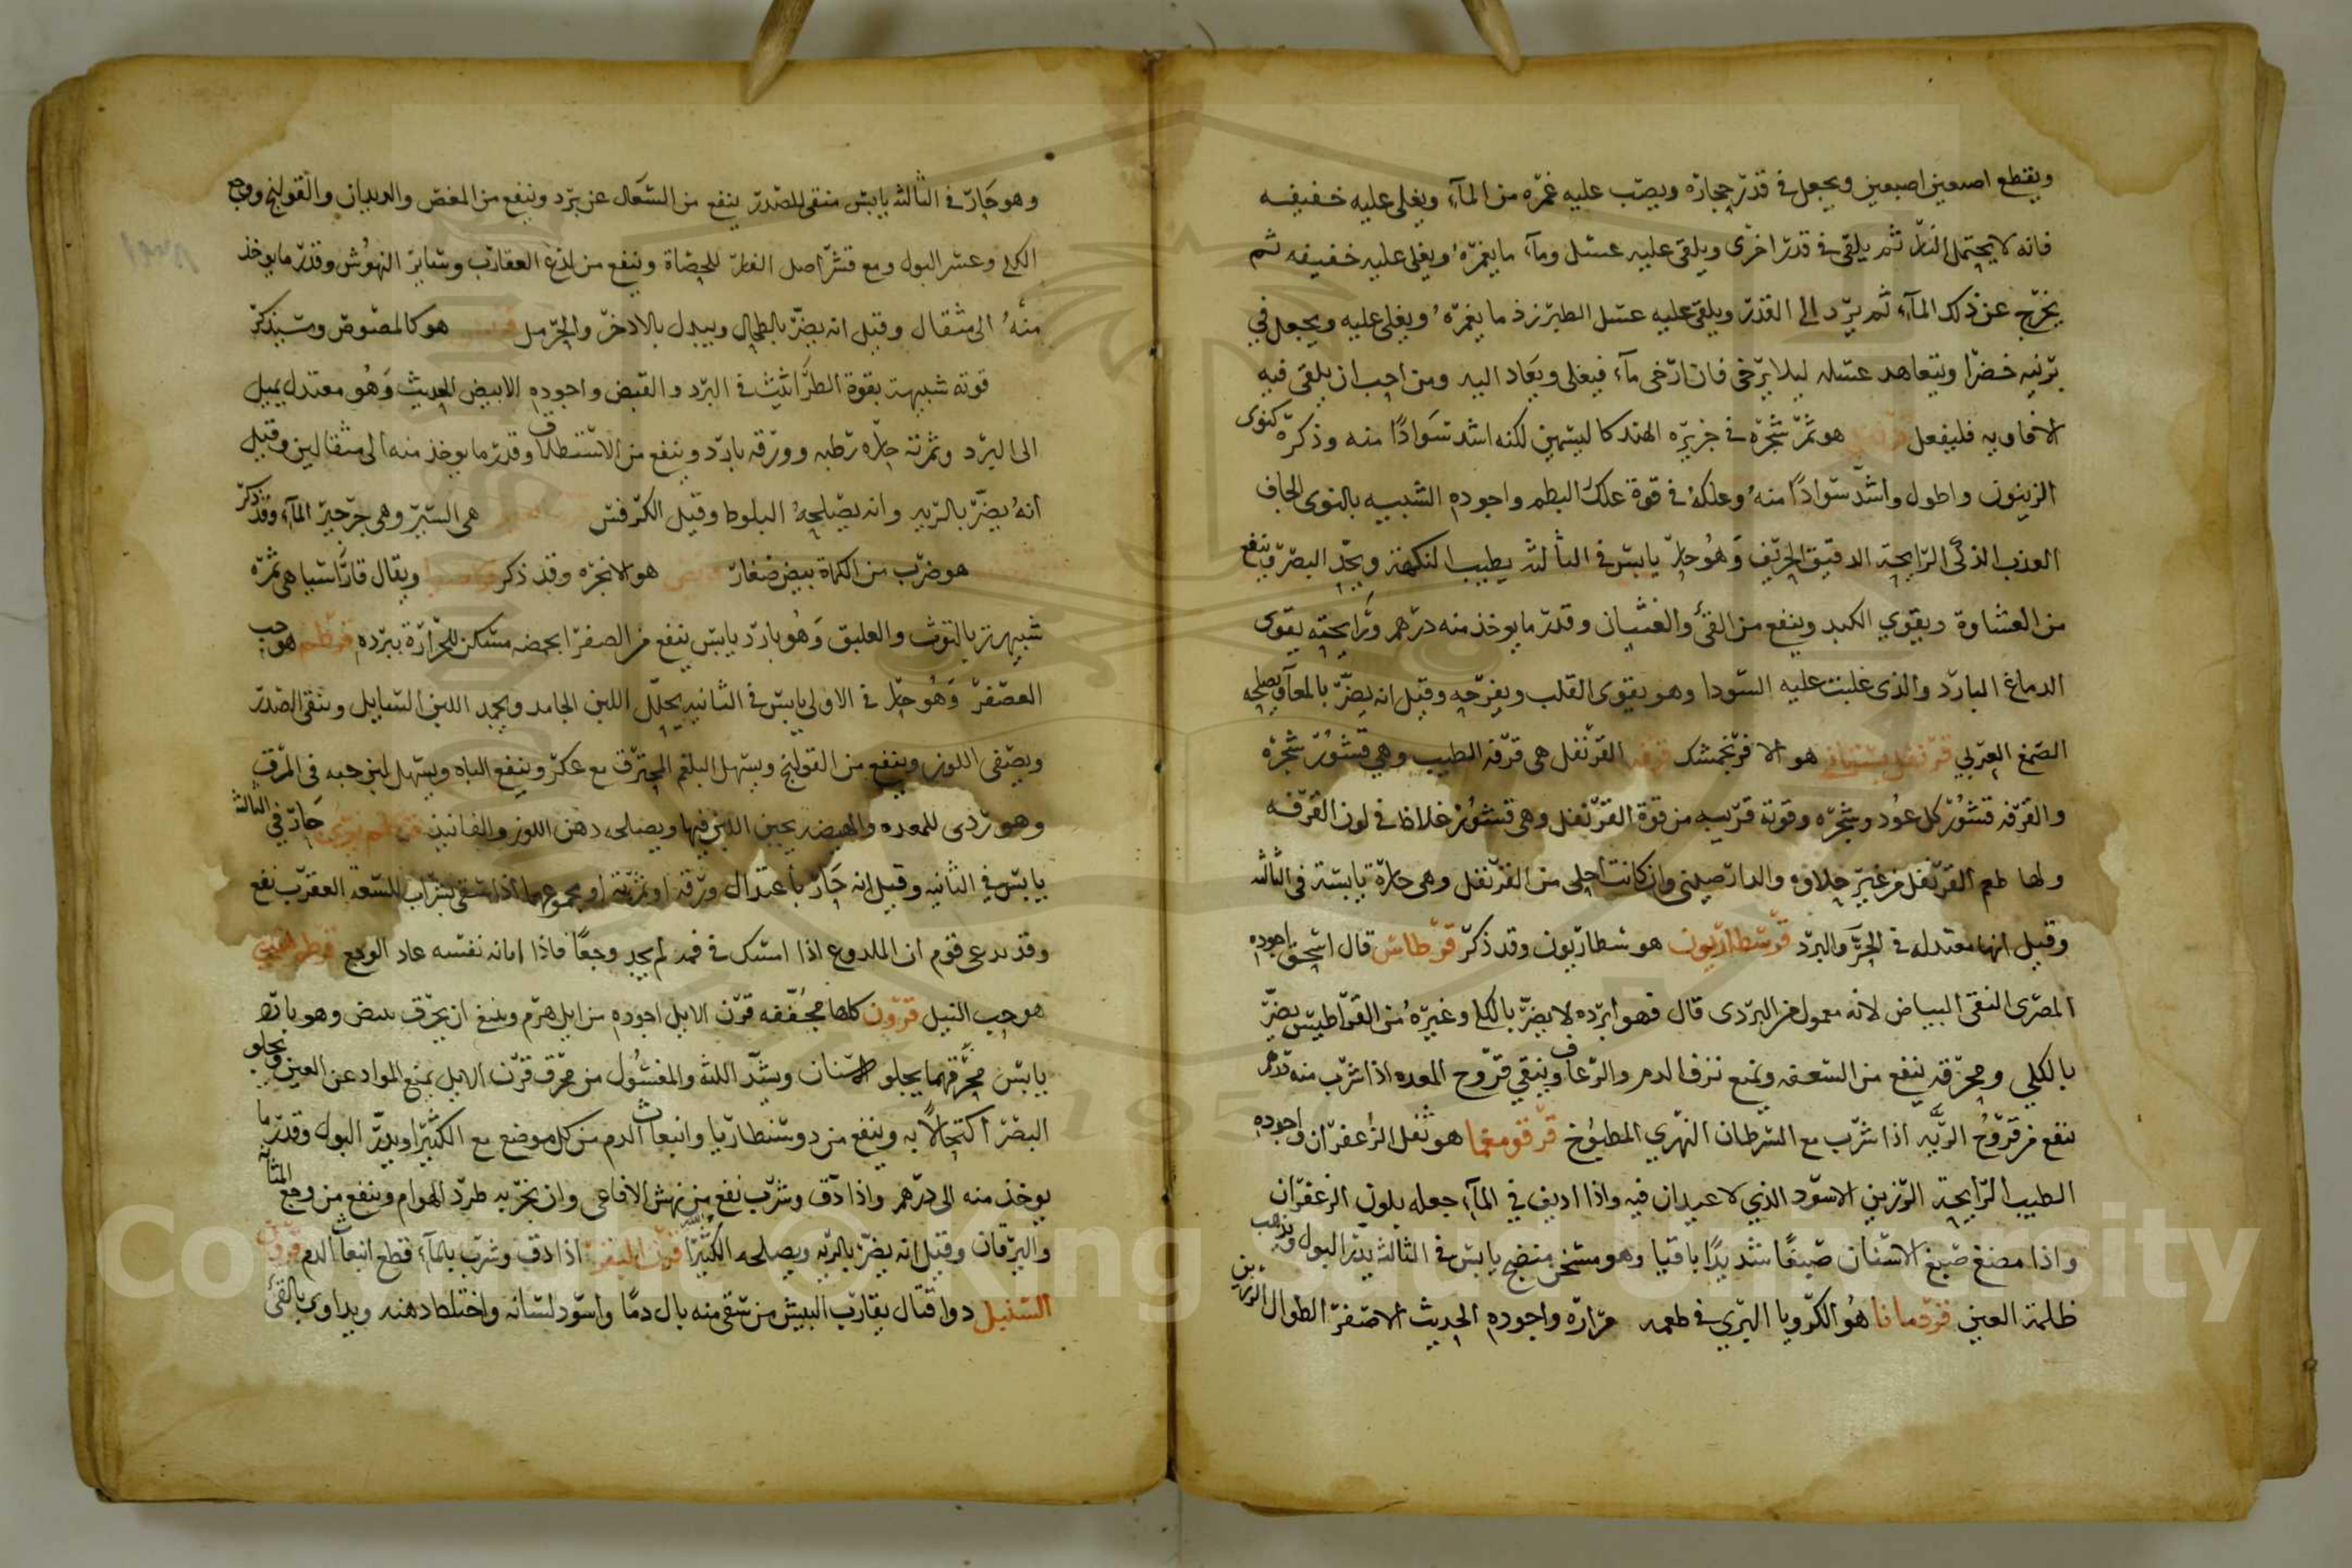 ويقطع اصبعين اصبعين ويجعل في قدر حجاره ويصب عليه غمره من المآء ويغلي عليه خفيفه
فانه لا يحتمل النار ثم يلقى في قدر اخرى ويلقى عليه عسل ومآء ما يغمره ويغلى عليه خفيفه ثم
يخرج عن ذلك المآء ثم يرد الى القدر ويلقى عليه عسل الطبرزذ ما يغمره ويغلى عليه ويجعل في
برنيه خضرا ويتعاهد عسله ليلا يرخى فان ارخى مآء فيغلى ويعاد اليه ومن احب ان يلقى فيه
الافاويه فليفعل قرنفل هو ثمر شجره في جزيره الهند كالياسمين لكنه اشد سوادا منه وذكره كنوى
الزيتون واطول واشد سوادا منه وعلكه في قوة علك البطم واجوده الشبيه بالنوى الجاف
العذب الذكى الرايحة الدقيق الحريف وهو حار يابس في الثالثه يطيب النكهة ويحد البصر وينفع
من الغشاوة ويقوي الكبد وينفع من القئ والغثيان وقدر ما يوخذ منه درهم ورايحته يقوى
الدماغ البارد والذى غلبت عليه السودا وهو يقوى القلب ويفرحه وقيل انه يضر بالمعآ ويصلحه
الصمغ العربي قرنفل بستاني هو الافرنجمشك قرفه القرنفل هى قرفة الطيب وهي قشور شجره
والقرفه قشور كل عود وشجره وقوته قريبه من قوة القرنفل وهى قشور غلاظ في لون القرفه
ولها طعم القرنفل من غير حلاوه والدارصينى وان كانت احلى من القرنفل وهى حارة يابسة في الثالثه
وقيل انها معتدله في الحر والبرد قرسطاريون هو سطاريون وقد ذكر قرطاس قال اسحق اجوده
المصرى النقى البياض لانه معمول من البردى قال فهو ابرده لا يضر بالكلى وغيره من القراطيس يضر
بالكلي ومحرقه ينفع من السعفه ويمنع نزف الدم والرعاف وينقي قروح المعده اذا شرب منه درهم
نفع من قروح الريه اذا شرب مع السرطان النهري المطبوخ قرقومغما هو ثفل الزعفران واجوده
الطيب الرايحة الرزين الاسود الذي لا عيدان فيه واذا اديف في المآء جعله بلون الزعفران
واذا مضغ صبغ الاسنان صبغا شديدا باقيا وهو مسخن منضج يابس في الثالثه يدر البول ويذهب
ظلمة العين قردمانا هو الكرويا البري في طعمه مرارة واجوده الحديث الاصفر الطوال الرزين
وهو حار في الثالثه يابس منقى للصدر ينفع من السعال عن برد وينفع من المغص والديدان والقولنج ووجع
الكلى وعسر البول ومع قشر اصل الغار للحصاة وينفع من لدغ العقارب وساير النهوش وقدر ما يوخذ
منه الى مثقال وقيل انه يضر بالطحال ويبدل بالاذخر والحرمل هو كالمصوص وسنذكر
قوته شبيهة بقوة الطراثيث في البرد والقبض واجوده الابيض الحديث وهو معتدل يميل
الى البرد وثمرته حاره رطبه وورقه بارد وينفع من الاستنطلاق وقدر ما يوخذ منه الى مثقالين وقيل
انه يضر بالريه وانه يصلحه البلوط وقيل الكرفس هى السير وهى جرجير المآء وقد ذكر
هو ضرب من الكماة بيض صغار هو الانجره وقد ذكر ويقال قاراسيا هى ثمره
شبيهة بالتوت والعليق وهو بارد يابس ينفع من الصفرا بحمضه مسكن للحرارة ببرده قرطم هو حب
العصفر وهو حار في الاولى يابس في الثانيه يحلل اللبن الجامد ويجمد اللبن السايل وينقى الصدر
ويصفى اللون وينفع من القولنج ويسهل البلغم المحترق مع عكر وينفع الباه ويسهل لبن حبه في المرق
وهو ردى للمعده والهيضه يجبن اللبن فيها ويصلحه دهن اللوز والفانيذ قرطم بري حار في الثالثه
يابس في الثانيه وقيل انه حار باعتدال ورقه او ثمرته او مجموعهما اذا سقى بشراب للسعة العقرب نفع
وقد يدعى قوم ان الملدوغ اذا امسك في فمه لم يجد وجعا فاذا ابانه نفسه عاد الوجع قرطم هندي
هو حب النيل قرون كلها مجففه قرن الايل اجوده من ايل هرم وينبغ ان يحرق يبيض وهو بارد
يابس محرقهما يجلو الاسنان ويشد اللثه والمغسول من محرق قرن الايل يمنع المواد عن العين ويجلو
البصر اكتحالا به وينفع من دوسنطاريا وانبعاث الدم من كل موضع مع الكثيرا ويدر البول وقدر ما
يوخذ منه الى درهم واذا دق وشرب نفع من نهش الافاعى وان بخر به طرد الهوام وينفع من وجع المثانه
واليرقان وقيل انه يضر بالريه ويصلحه الكثيرا اذا دق وشرب بالمآء قطع انبعاث الدم قرون
السنبل دوا قتال يقارب البيش من سقى منه بال دما واسود لسانه واختلط ذهنه ويداوى بالقئ
Copyright © King Saud University